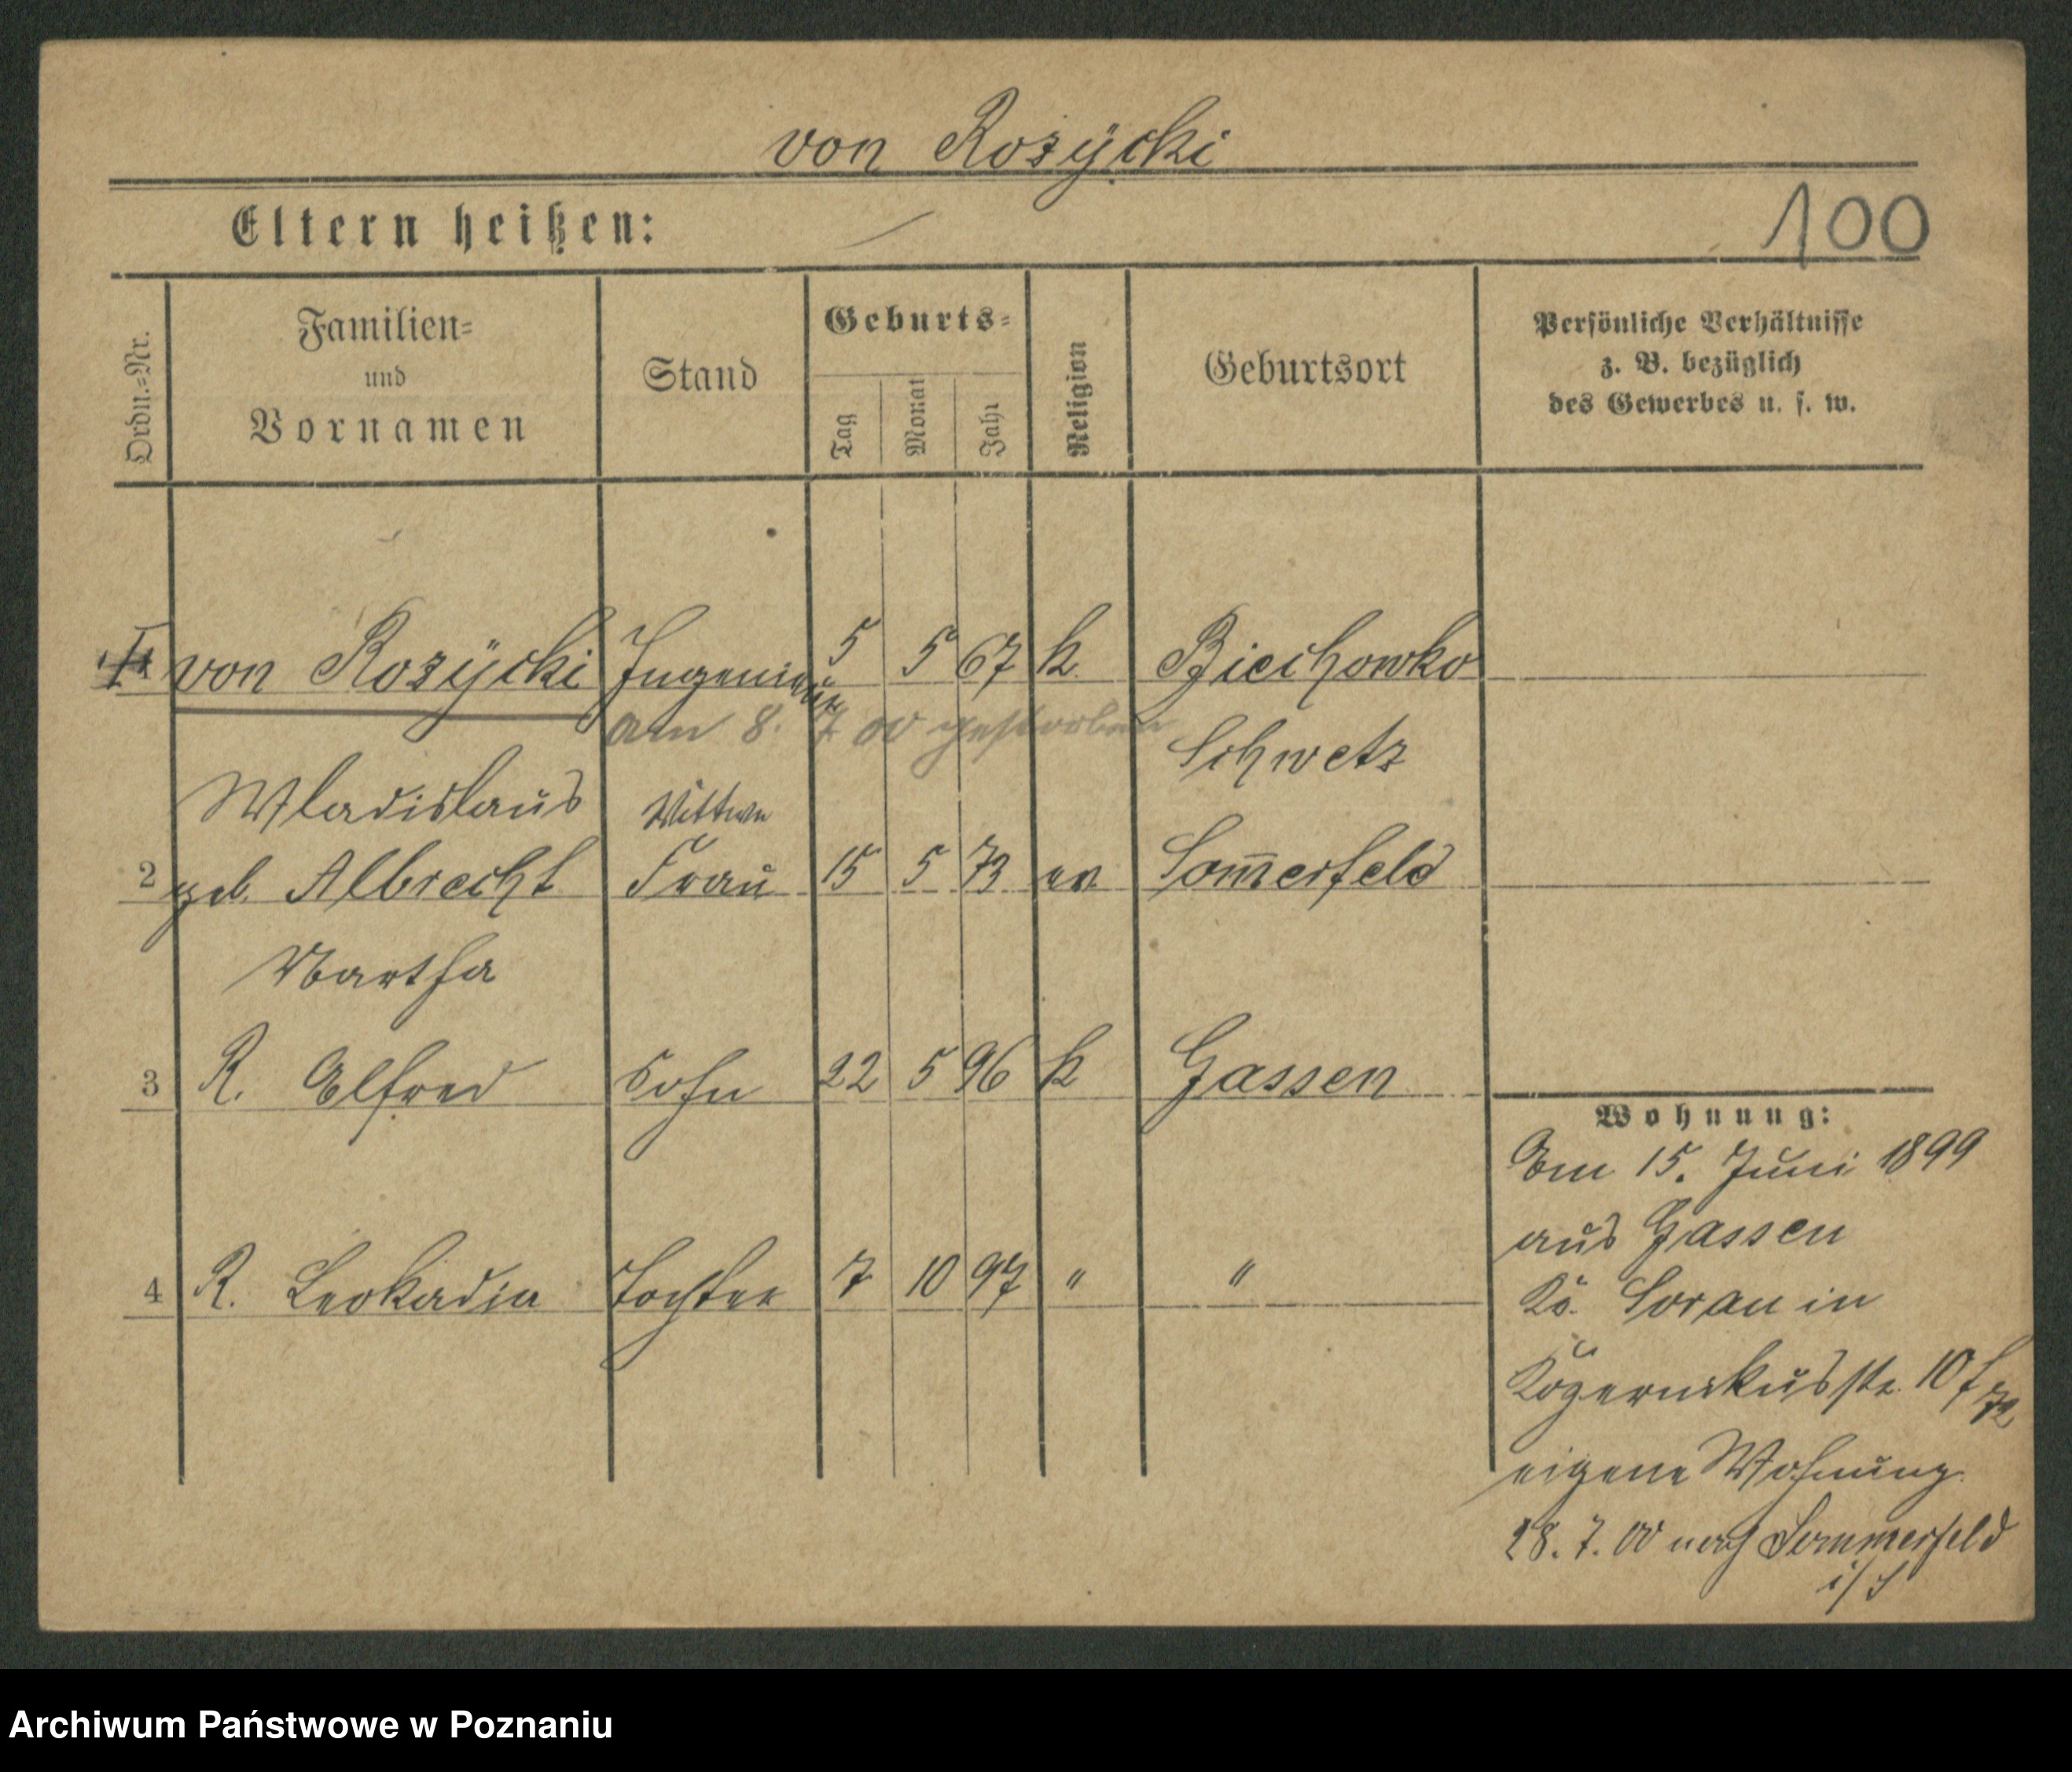 von Rozÿcki
Eltern heißen:
100
Ordn.=Nr.
Familien=
und
Vornamen
Stand
Geburts=
Tag
Monat
Jahr
Religion
Geburtsort
Persönliche Verhältnisse
z. B. bezüglich
des Gewerbes u. s. w.
von Rozÿcki Ingenieur 5 5 67 k. Biechowko
am 8. 7. 00 gestorben
Schwetz
Wladislaus
Wittwe
2 geb. Albrecht Frau 15 5 73 ev Som̅erfeld
Martha
3 R. Alfred Sohn 22 5 96 k Gassen
4 R. Leokadia Tochter 7 10 97 " "
Wohnung:
Am 15. Juni 1899
aus Gassen
Kr. Sorau in
10
eigene Wohnung.
28. 7. 00 nach Sommerfeld
Archiwum Państwowe w Poznaniu